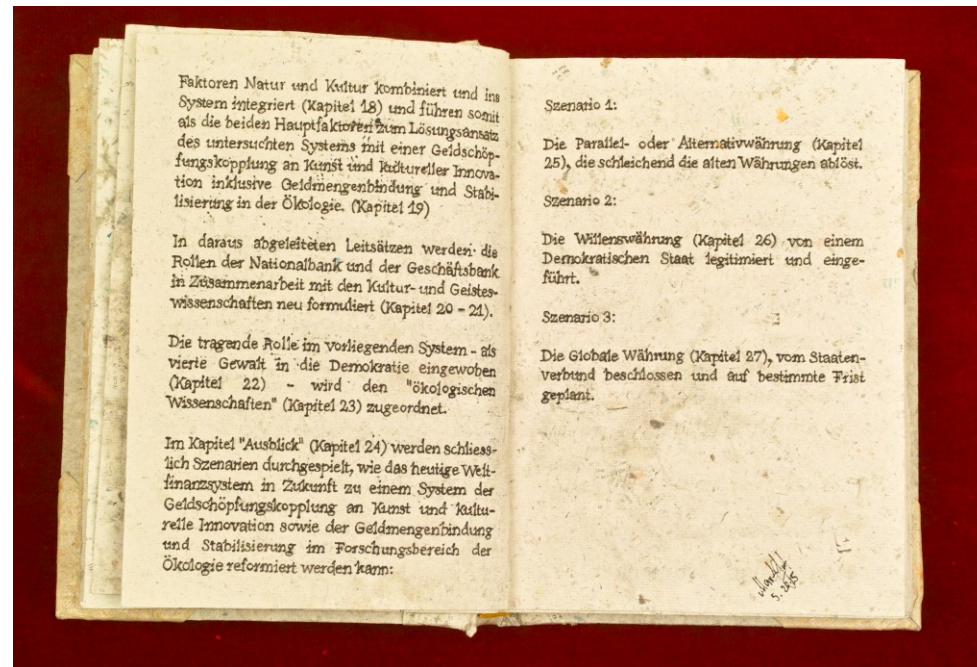 Faktoren Natur und Kultur kombiniert und ins
System integriert (Kapitel 18) und führen somit
als die beiden Hauptfaktoren zum Lösungsansatz
des untersuchten Systems mit einer Geldschöp-
fungskopplung an Kunst und kultureller Innova-
tion inklusive Geldmengenbindung und Stabi-
lisierung in der Ökologie. (Kapitel 19)
In daraus abgeleiteten Leitsätzen werden die
Rollen der Nationalbank und der Geschäftsbank
in Zusammenarbeit mit den Kultur- und Geistes-
wissenschaften neu formuliert (Kapitel 20 - 21).
Die tragende Rolle im vorliegenden System - als
vierte Gewalt in die Demokratie eingewoben
(Kapitel 22) - wird den "ökologischen
Wissenschaften" (Kapitel 23) zugeordnet.
Im Kapitel "Ausblick" (Kapitel 24) werden schliess-
lich Szenarien durchgespielt, wie das heutige Welt-
finanzsystem in Zukunft zu einem System der
Geldschöpfungskopplung an Kunst und kultu-
relle Innovation sowie der Geldmengenbindung
und Stabilisierung im Forschungsbereich der
Ökologie reformiert werden kann:
Szenario 1:
Die Parallel- oder Alternativwährung (Kapitel
25), die schleichend die alten Währungen ablöst.
Szenario 2:
Die Willenswährung (Kapitel 26) von einem
Demokratischen Staat legitimiert und einge-
führt.
Szenario 3:
Die Globale Währung (Kapitel 27), vom Staaten-
verbund beschlossen und auf bestimmte Frist
geplant.